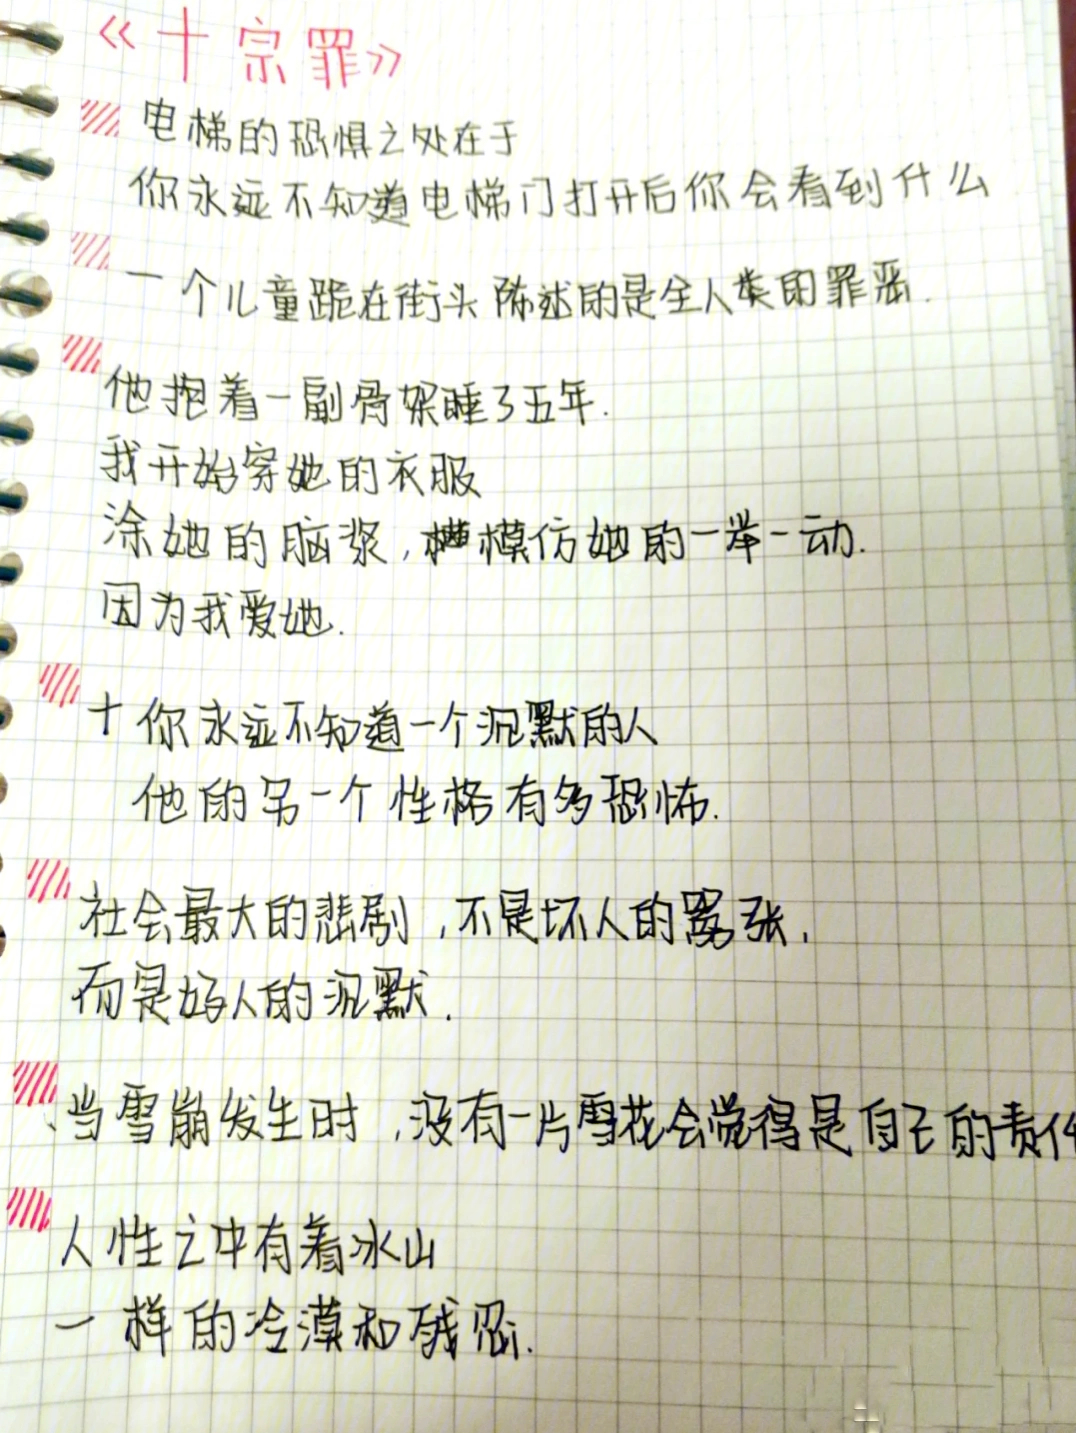 《十宗罪》
电梯的恐惧之处在于
你永远不知道电梯门打开后你会看到什么
一个儿童跪在街头陈述的是全人类的罪恶.
他抱着一副骨架睡了五年.
我开始穿她的衣服
涂她的脑浆,模仿她的一举一动.
因为我爱她.
十你永远不知道一个沉默的人
他的另一个性格有多恐怖.
社会最大的悲剧,不是坏人的嚣张,
而是好人的沉默.
、当雪崩发生时,没有一片雪花会觉得是自己的责任
人性之中有着冰山
一样的冷漠和残忍.